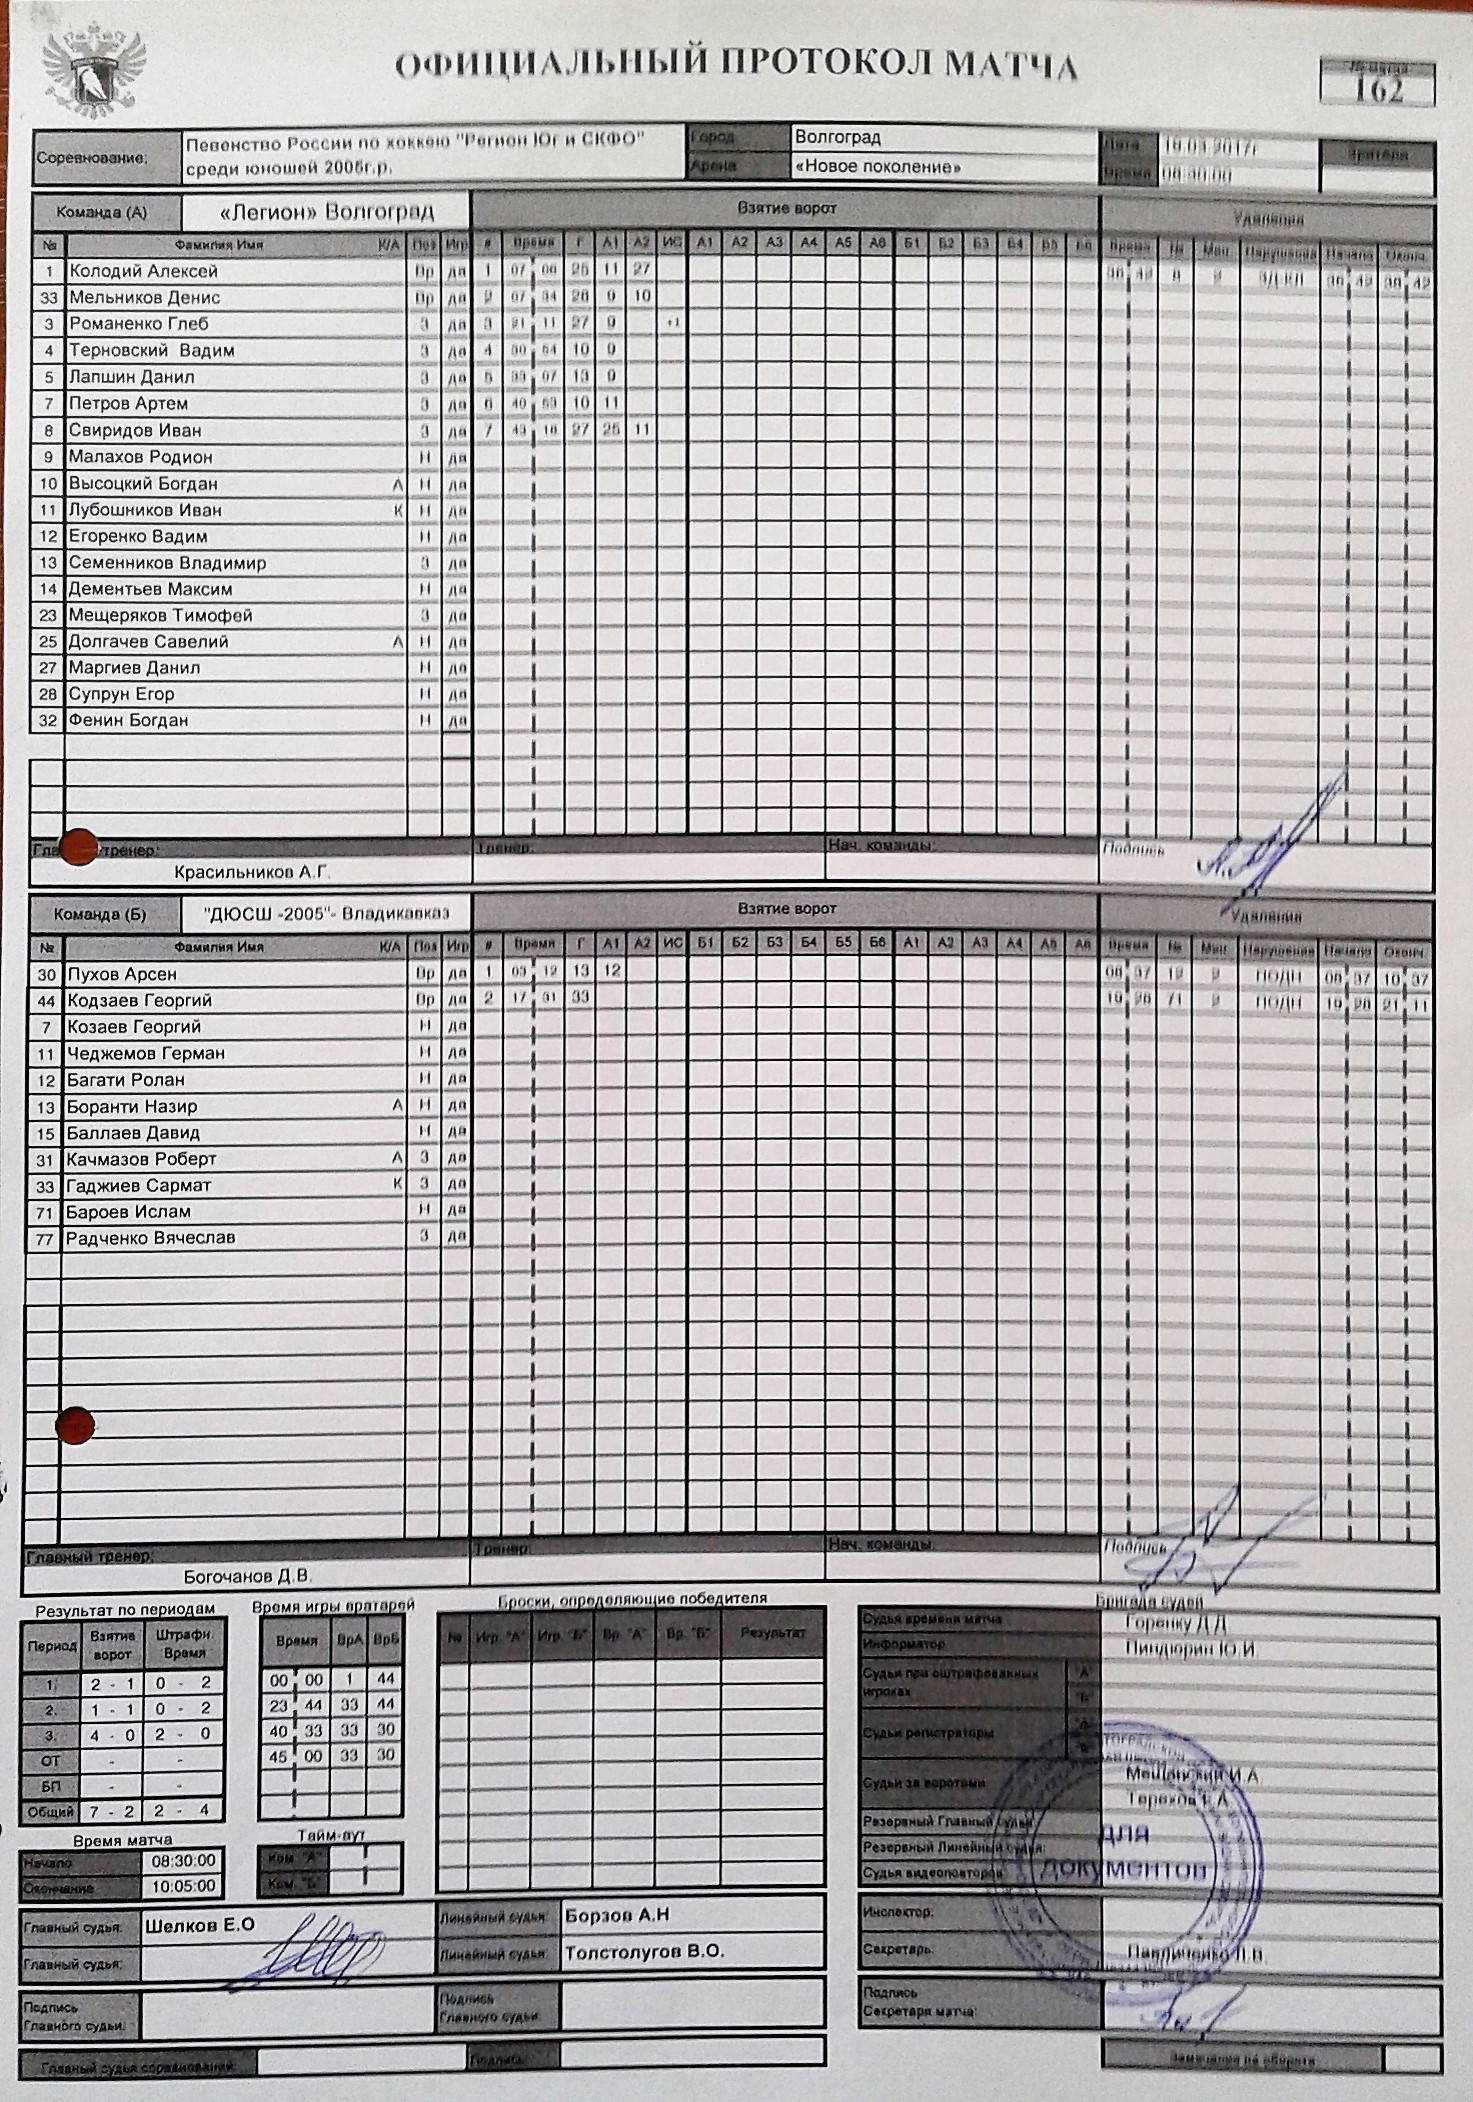 ОФИЦИАЛЬНЫЙ ПРОТОКОЛ МАТЧА
162
Соревнование: Певенство России по хоккею "Регион Юг и СКФО" Город Волгоград Дата Зрители
среди юношей 2005г.р. Арена «Новое поколение» Время 08:30:00
Команда (А) «Легион» Волгоград Взятие ворот Удаления
№ Фамилия Имя К/А Поз Игр # Время Г А1 А2 ИС А1 А2 А3 А4 А5 А6 Б1 Б2 Б3 Б4 Б5 Б6 Время № Мин Нарушения Начало Оконч.
1 Колодий Алексей Вр да 1 07 06 25 11 27
33 Мельников Денис Вр да 2 07 34 28 9 10
3 Романенко Глеб З да 3 21 11 27 9 +1
4 Терновский Вадим З да 4 30 54 10 9
5 Лапшин Данил З да 5 33 07 13 9
7 Петров Артем З да 6 40 53 10 11
8 Свиридов Иван З да 7 43 16 27 25 11
9 Малахов Родион Н да
10 Высоцкий Богдан А Н да
11 Лубошников Иван К Н да
12 Егоренко Вадим Н да
13 Семенников Владимир З да
14 Дементьев Максим Н да
23 Мещеряков Тимофей З да
25 Долгачев Савелий А Н да
27 Маргиев Данил Н да
28 Супрун Егор Н да
32 Фенин Богдан Н да
тренер: Тренер: Нач. команды: Подпись
Красильников А.Г.
Команда (Б) "ДЮСШ -2005"- Владикавказ Взятие ворот Удаления
№ Фамилия Имя К/А Поз Игр # Время Г А1 А2 ИС Б1 Б2 Б3 Б4 Б5 Б6 А1 А2 А3 А4 А5 А6 Время № Мин Нарушения Начало Оконч.
30 Пухов Арсен Вр да 1 03 12 13 12 08 37 12 2 ПОДН 08 37 10 37
44 Кодзаев Георгий Вр да 2 17 31 33 19 28 71 2 ПОДН 19 28 21 11
7 Козаев Георгий Н да
11 Чеджемов Герман Н да
12 Багати Ролан Н да
13 Боранти Назир А Н да
15 Баллаев Давид Н да
31 Качмазов Роберт А З да
33 Гаджиев Сармат К З да
71 Бароев Ислам Н да
77 Радченко Вячеслав З да
Главный тренер: Тренер: Нач. команды: Подпись
Богочанов Д.В.
Результат по периодам Время игры вратарей Броски, определяющие победителя Бригада судей
Период Взятие ворот Штрафн. Время
1. 2 - 1 0 - 2
2. 1 - 1 0 - 2
3. 4 - 0 2 - 0
ОТ - -
БП - -
Общий 7 - 2 2 - 4
Время ВрА ВрБ
00 00 1 44
23 44 33 44
40 33 33 30
45 00 33 30
№ Игр. "А" Игр. "Б" Вр. "А" Вр. "Б" Результат
Судья времени матча Горенку Д.Д
Информатор Пиндюрин Ю.И
Судьи при оштрафованных игроках "А" "Б"
Судьи регистраторы
Судьи за воротами Мещанский И.А.
Терехов
Резервный Главный судья
Резервный Линейный судья:
Судья видеоповторов
ДЛЯ ДОКУМЕНТОВ
Время матча
Начало 08:30:00
Окончание 10:05:00
Тайм-аут
Ком. "А"
Ком. "Б"
Главный судья: Шелков Е.О Линейный судья: Борзов А.Н
Главный судья: Линейный судья: Толстолугов В.О.
Инспектор:
Секретарь: Павличенко
Подпись Главного судьи: Подпись Главного судьи
Подпись Секретаря матча:
Главный судья соревнований: Подпись
Замечания на обороте